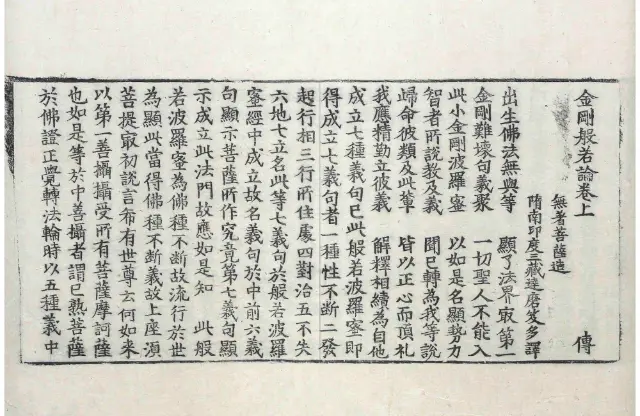 金剛般若論卷上　傳
無著菩薩造
隋南印度三藏達磨笈多譯
出生佛法無與等　顯了法界㝡第一
金剛難壞句義聚　一切聖人不能入
此小金剛波羅蜜　以如是名顯勢力
智者所說教及義　聞已轉為我等說
歸命彼類及此軰　皆以正心而頂礼
我應精勤立彼義　解釋相續為自他
成立七種義句已此般若波羅蜜即
得成立七義句者一種性不斷二發
起行相三行所住處四對治五不失
六地七立名此等七義句於般若波羅
蜜經中成立故名義句於中前六義
句顯示菩薩所作究竟第七義句顯
示成立此法門故應如是知　此般
若波羅蜜為佛種不斷故流行於世
為顯此當得佛種不斷義故上座湏
菩提㝡初說言希有世尊云何如来
以第一善攝攝受所有菩薩摩訶薩
也如是等於中善攝者謂已熟菩薩
於佛證正覺轉法輪時以五種義中